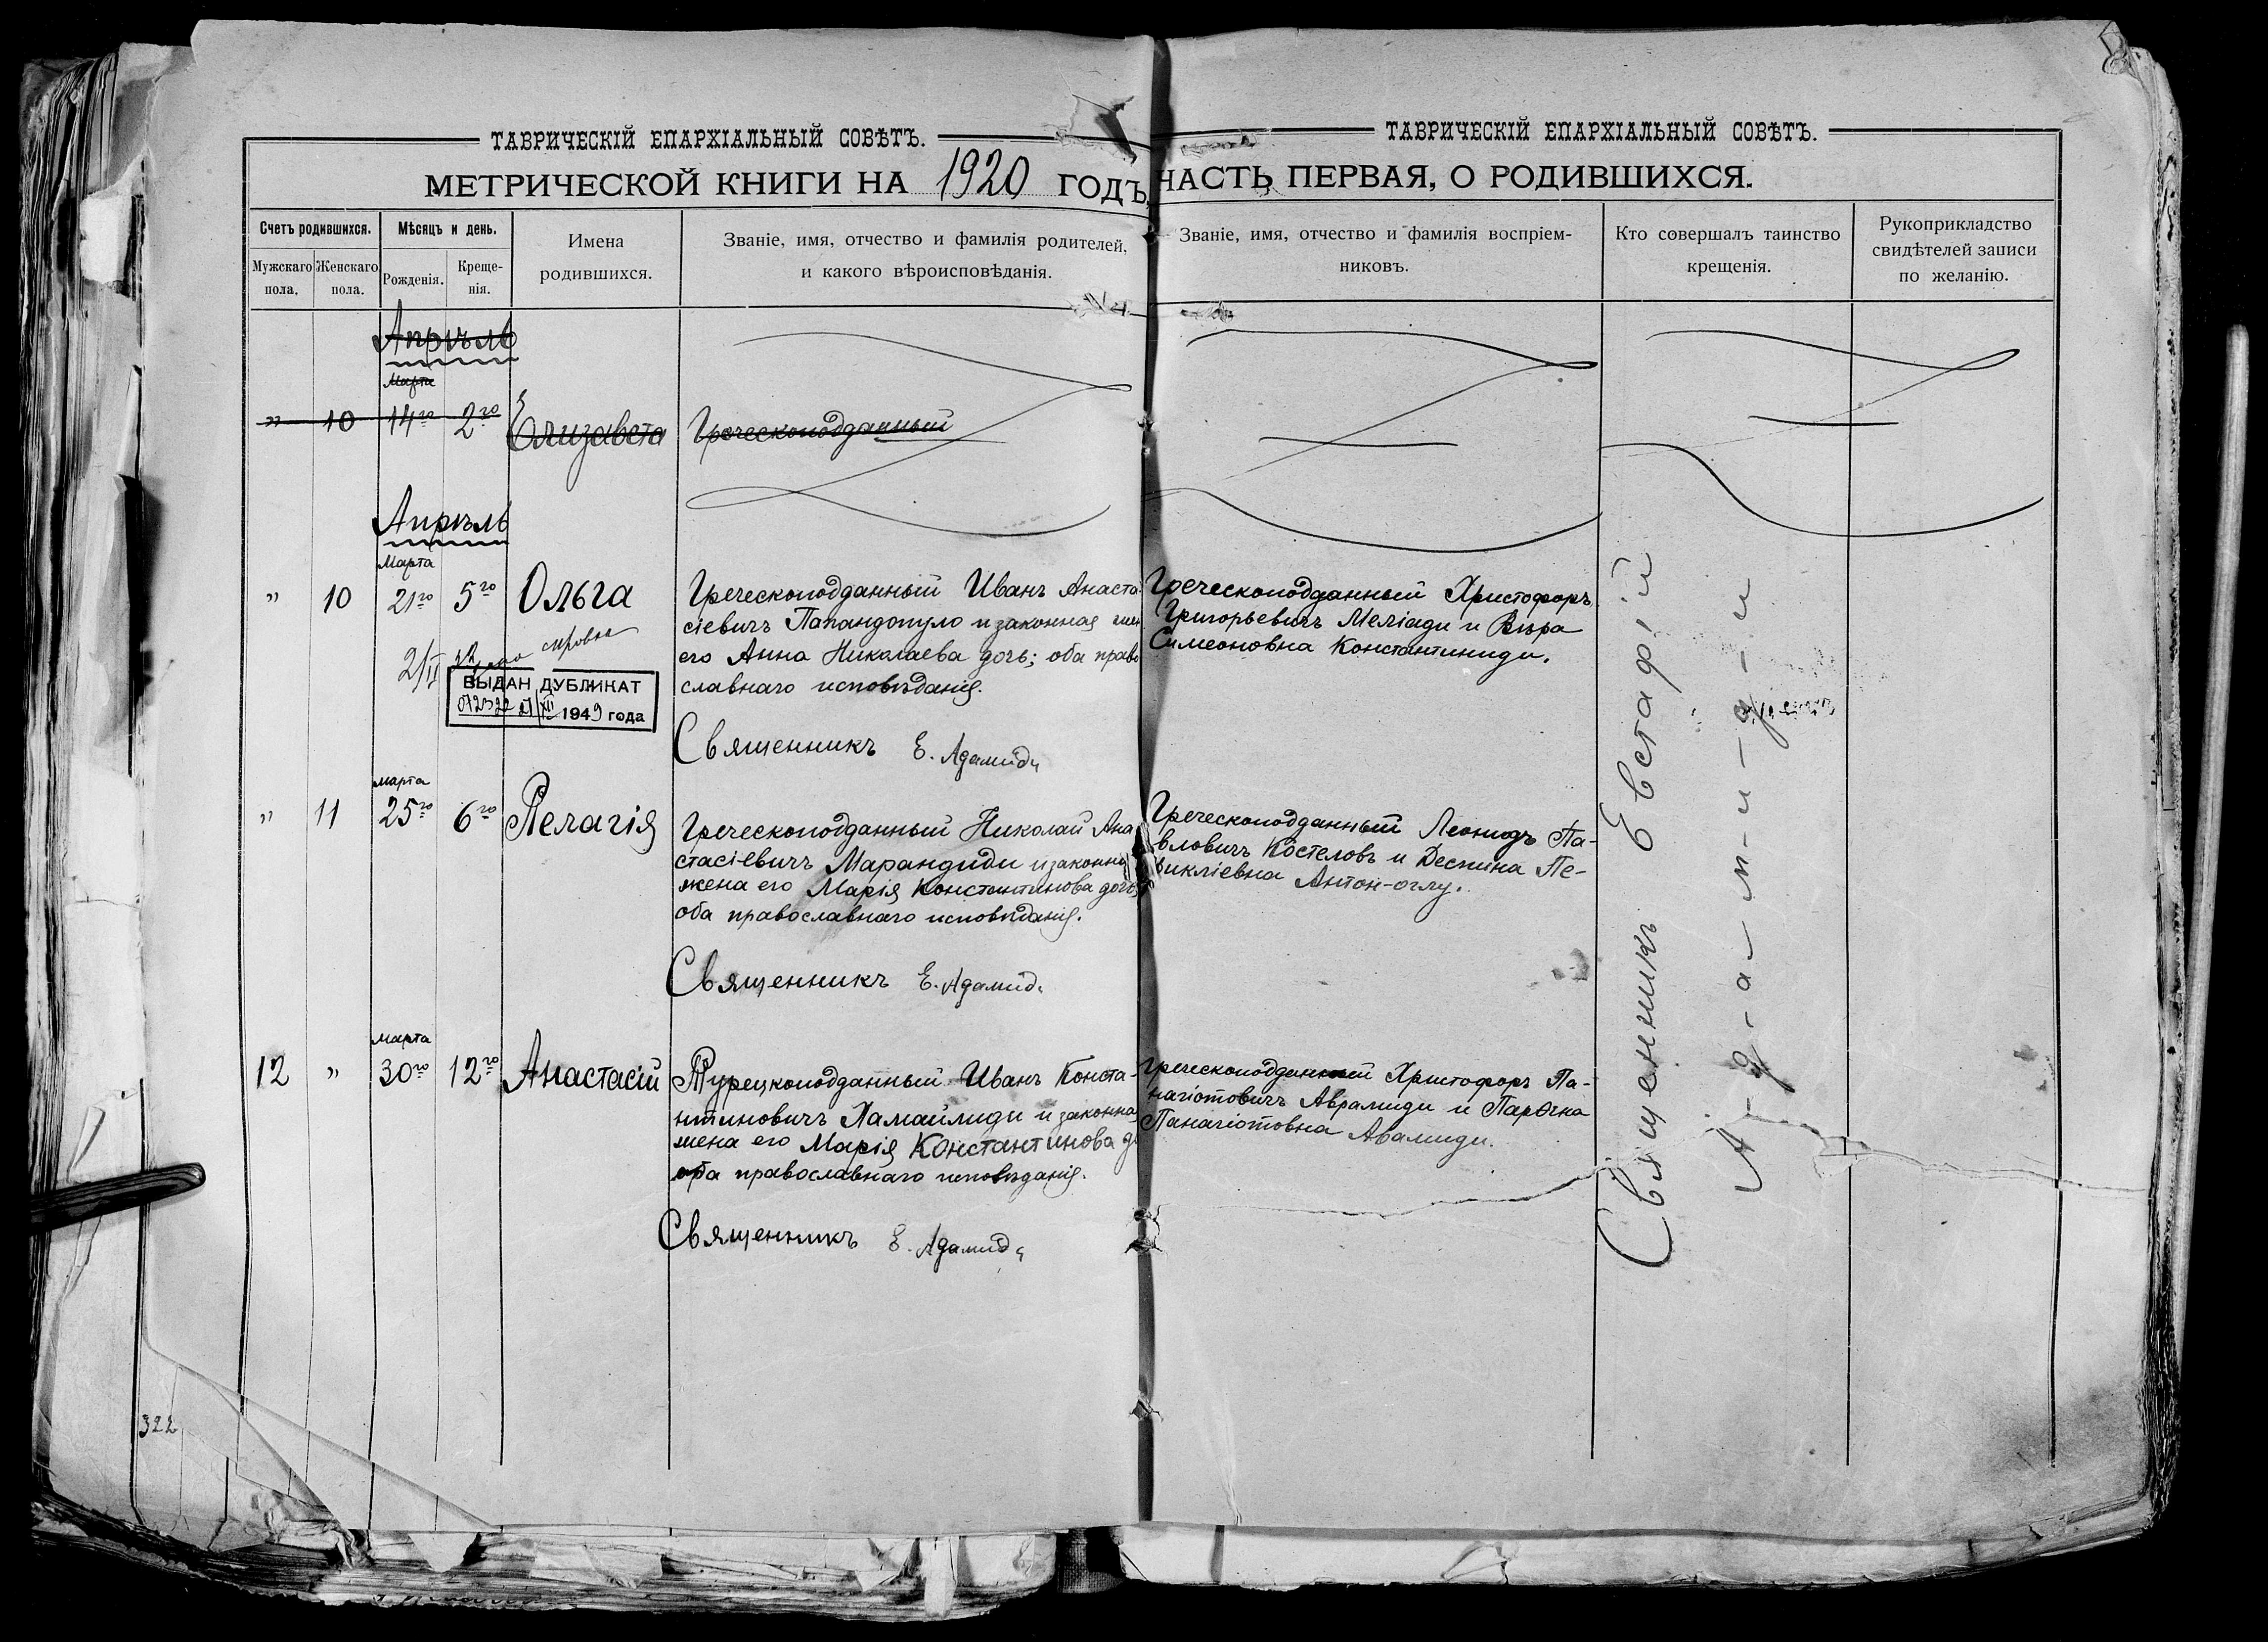 ТАВРИЧЕСКІЙ ЕПАРХІАЛЬНЫЙ СОВѢТЪ.
МЕТРИЧЕСКОЙ КНИГИ НА 1920 ГОДЪ,
Счетъ родившихся.
Мужскаго пола.
Женскаго пола.
Мѣсяцъ и день.
Рожденія.
Креще-
нія.
Имена
родившихся.
Званіе, имя, отчество и фамилія родителей,
и какого вѣроисповѣданія.
Апрѣль
Марта
" 10 14го 2го Елизавета Греческоподданный
Апрѣль
Марта
" 10 21го 5го Ольга
Греческоподданный Иванъ Анаста-
сіевичъ Папандопуло и законная жен
его Анна Николаева дочь; оба право
славнаго исповѣданія.
ВЫДАН ДУБЛИКАТ
1949 года
Священникъ Е. Адамиди
марта
" 11 25го 6го Пелагія
Греческоподданный Николай Ана
стасіевичъ Марандиди и законна
жена его Марія Константинова дочь
оба православнаго исповѣданія.
Священникъ Е. Адамиди
марта
12 " 30го 12го Анастасій
Турецкоподданный Иванъ Конста-
нтиновичъ Памаилиди и законна
жена его Марія Константинова д
оба православнаго исповѣданія.
Священникъ Е. Адамиди
322
ТАВРИЧЕСКІЙ ЕПАРХІАЛЬНЫЙ СОВѢТЪ.
ЧАСТЬ ПЕРВАЯ, О РОДИВШИХСЯ.
Званіе, имя, отчество и фамилія воспріем-
никовъ.
Кто совершалъ таинство
крещенія.
Рукоприкладство
свидѣтелей записи
по желанію.
Греческоподданный Христофоръ
Григорьевичъ Меліади и Вѣра
Симеоновна Константиниди.
Греческоподданный Леонидъ Па-
вловичъ Костеловъ и Деспина Пе-
рикліевна Антон-оглу.
Греческоподданный Христофоръ Па-
нагіотовичъ Аврамиди и
Панагіотовна Авамиди.
Священникъ Евстафій
А-д-а-м-и-д-и